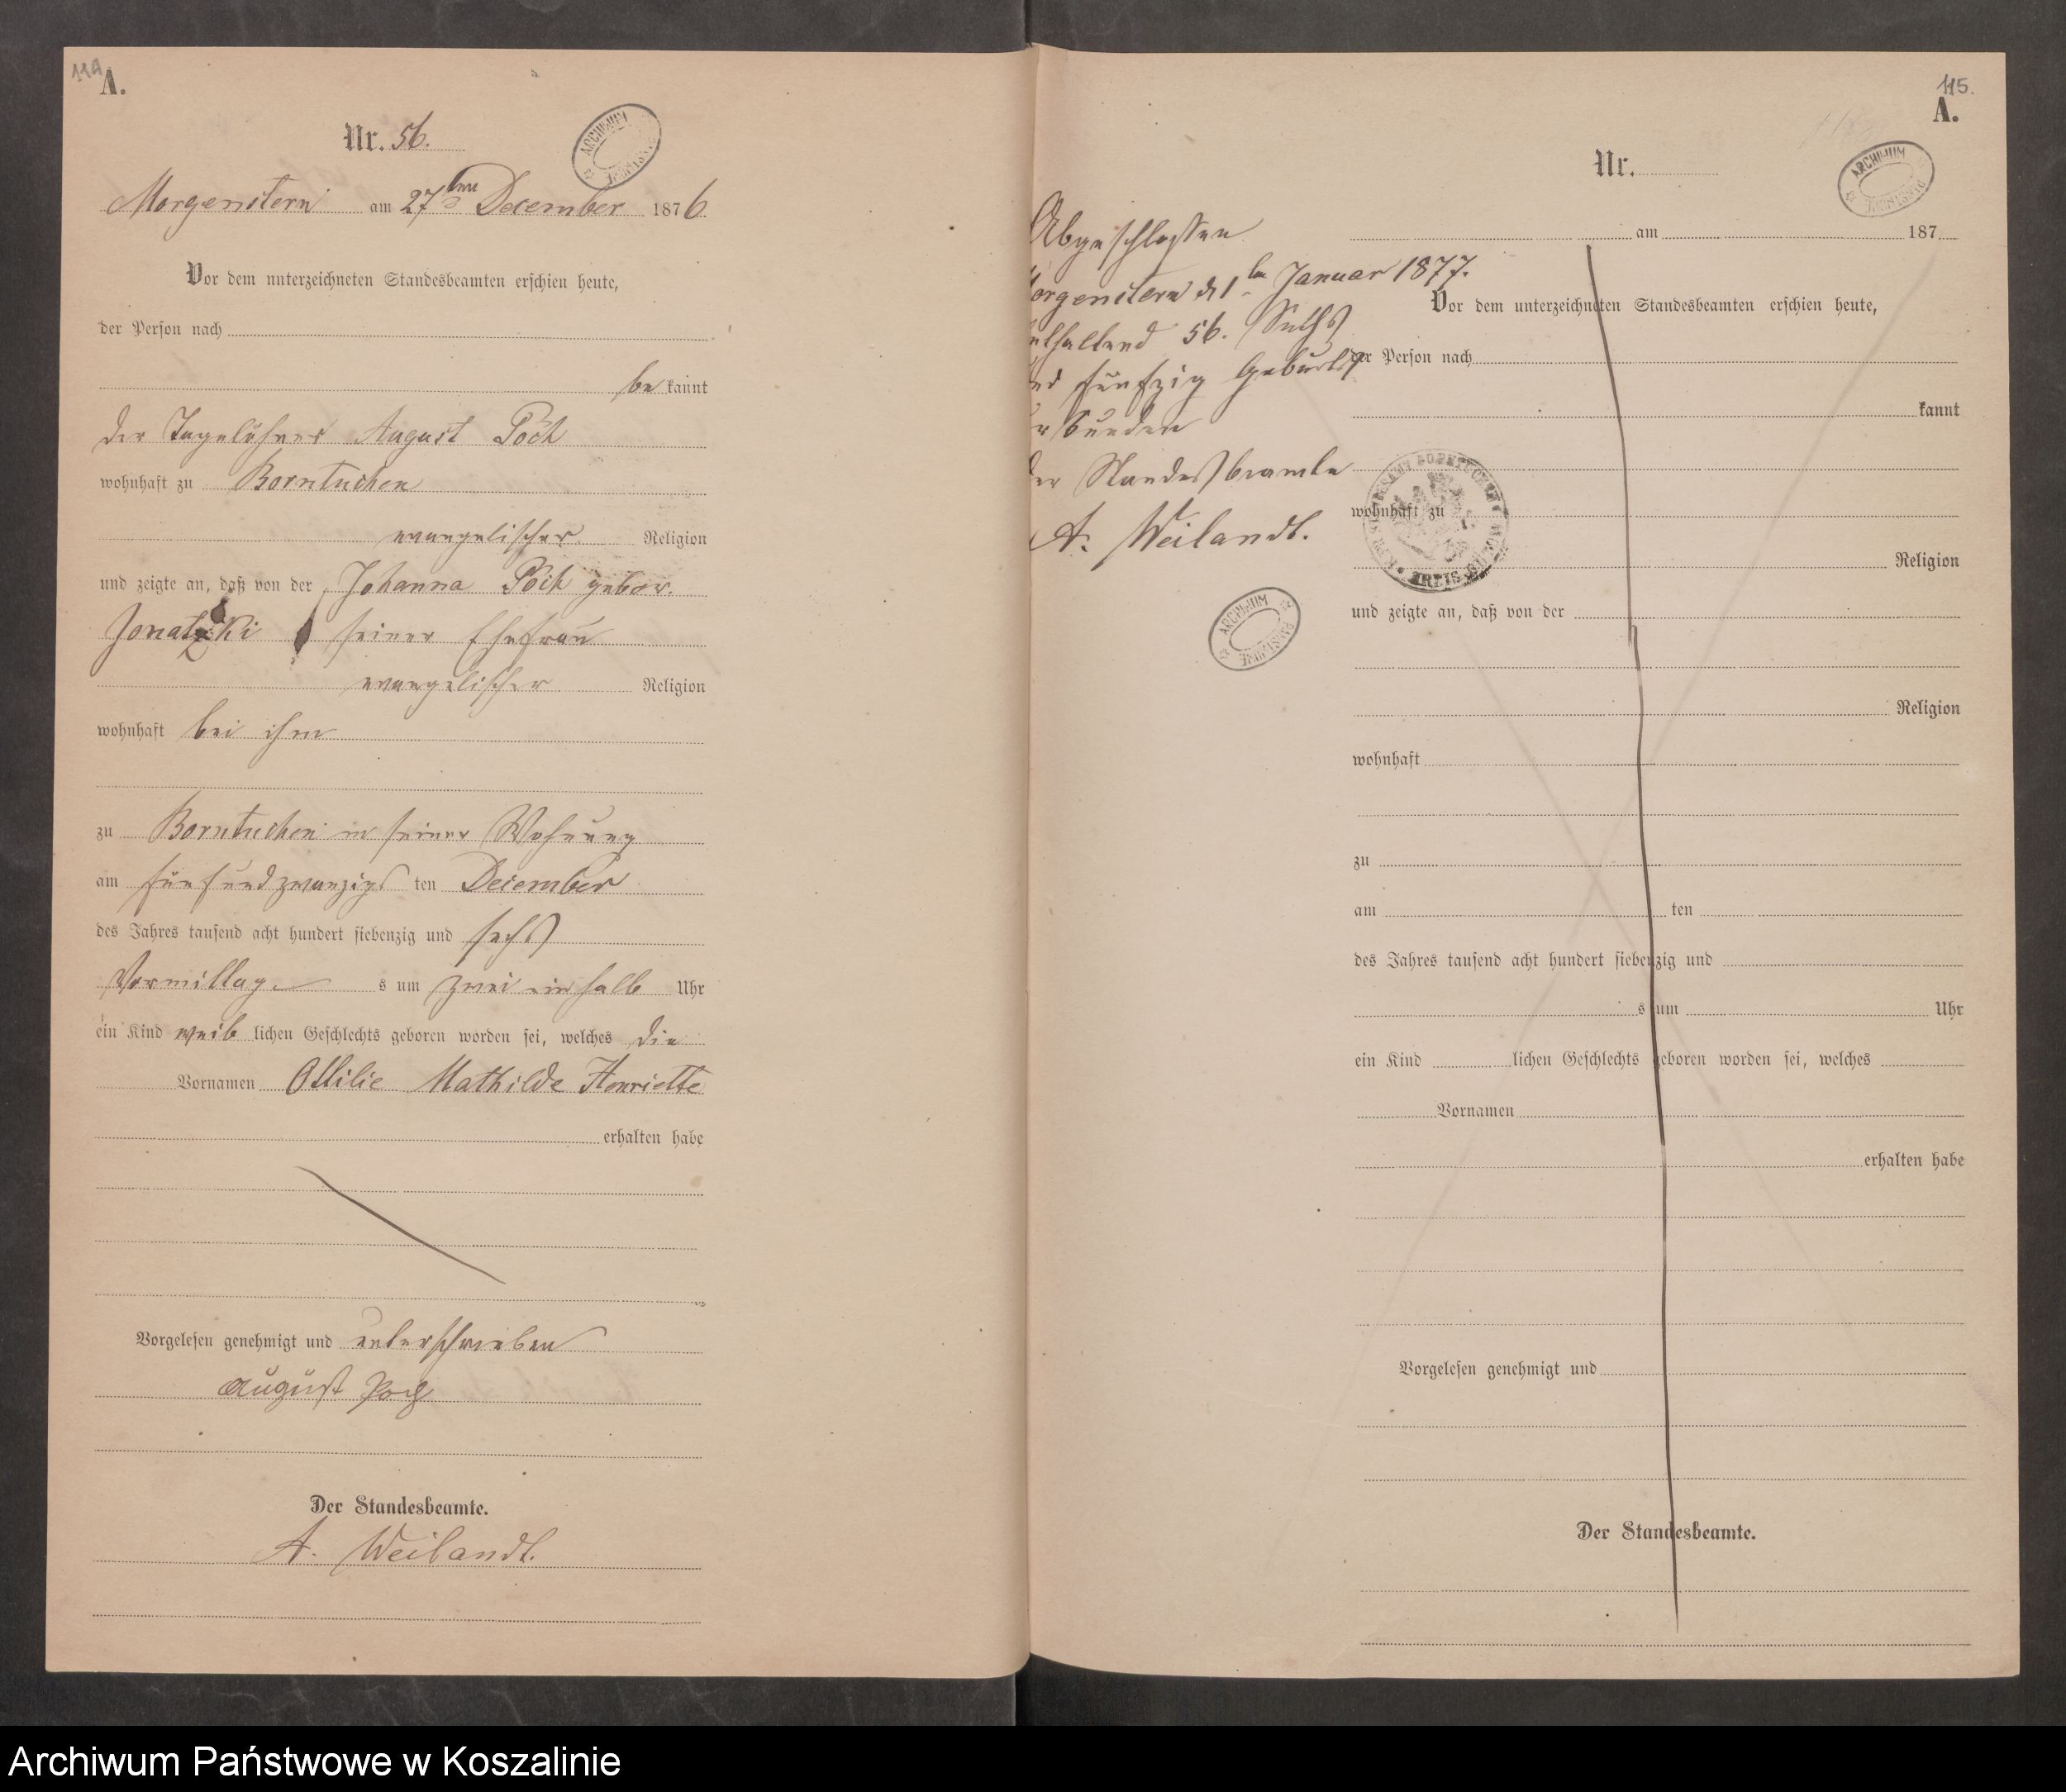 114
A.
Nr. 56.
ARCHIWUM PAŃSTWOWE
Morgenstern am 27ten December 1876.
Vor dem unterzeichneten Standesbeamten erschien heute,
der Person nach
be kannt
der Tagelöhner August Pöch
wohnhaft zu Borntuchen
evangelischer Religion
und zeigte an, daß von der Johanna Pöch gebor.
Jonatzki seiner Ehefrau
evangelischer Religion
wohnhaft bei ihm
zu Borntuchen in seiner Wohnung
am fünfundzwanzigs ten December
des Jahres tausend acht hundert siebenzig und sechs
Vormittag s um zwei ein halb Uhr
ein Kind weib lichen Geschlechts geboren worden sei, welches die
Vornamen Ottilie Mathilde Henriette
erhalten habe
Vorgelesen genehmigt und unterschrieben
August Poch
Der Standesbeamte.
A. Weilandt.
115.
A.
Nr.
ARCHIWUM PAŃSTWOWE
Abgeschlossen
Morgenstern d 1ten Januar 1877.
enthaltend 56. Sechs
und fünfzig Geburts
urkunden
Der Standesbeamte
A. Weilandt.
ARCHIWUM PAŃSTWOWE
am 187
Vor dem unterzeichneten Standesbeamten erschien heute,
der Person nach
kannt
wohnhaft zu
Religion
und zeigte an, daß von der
Religion
wohnhaft
zu
am ten
des Jahres tausend acht hundert siebenzig und
s um Uhr
ein Kind lichen Geschlechts geboren worden sei, welches
Vornamen
erhalten habe
Vorgelesen genehmigt und
Der Standesbeamte.
Archiwum Państwowe w Koszalinie